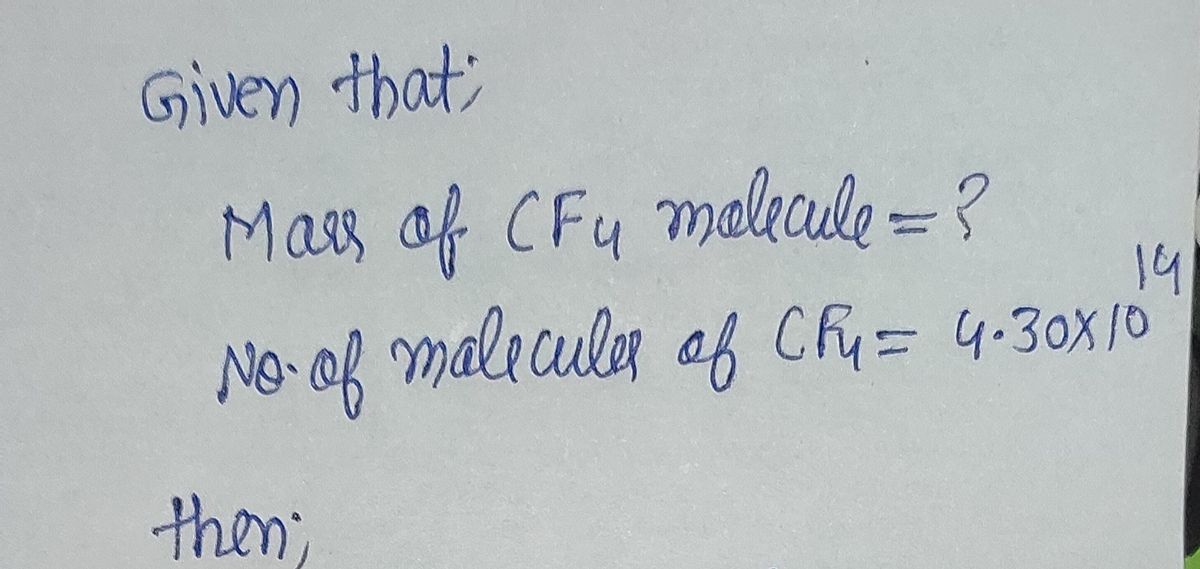 Given that;
Mass of CF4 molecule = ?
No. of molecules of CF4 = 4.30x10^14
then;